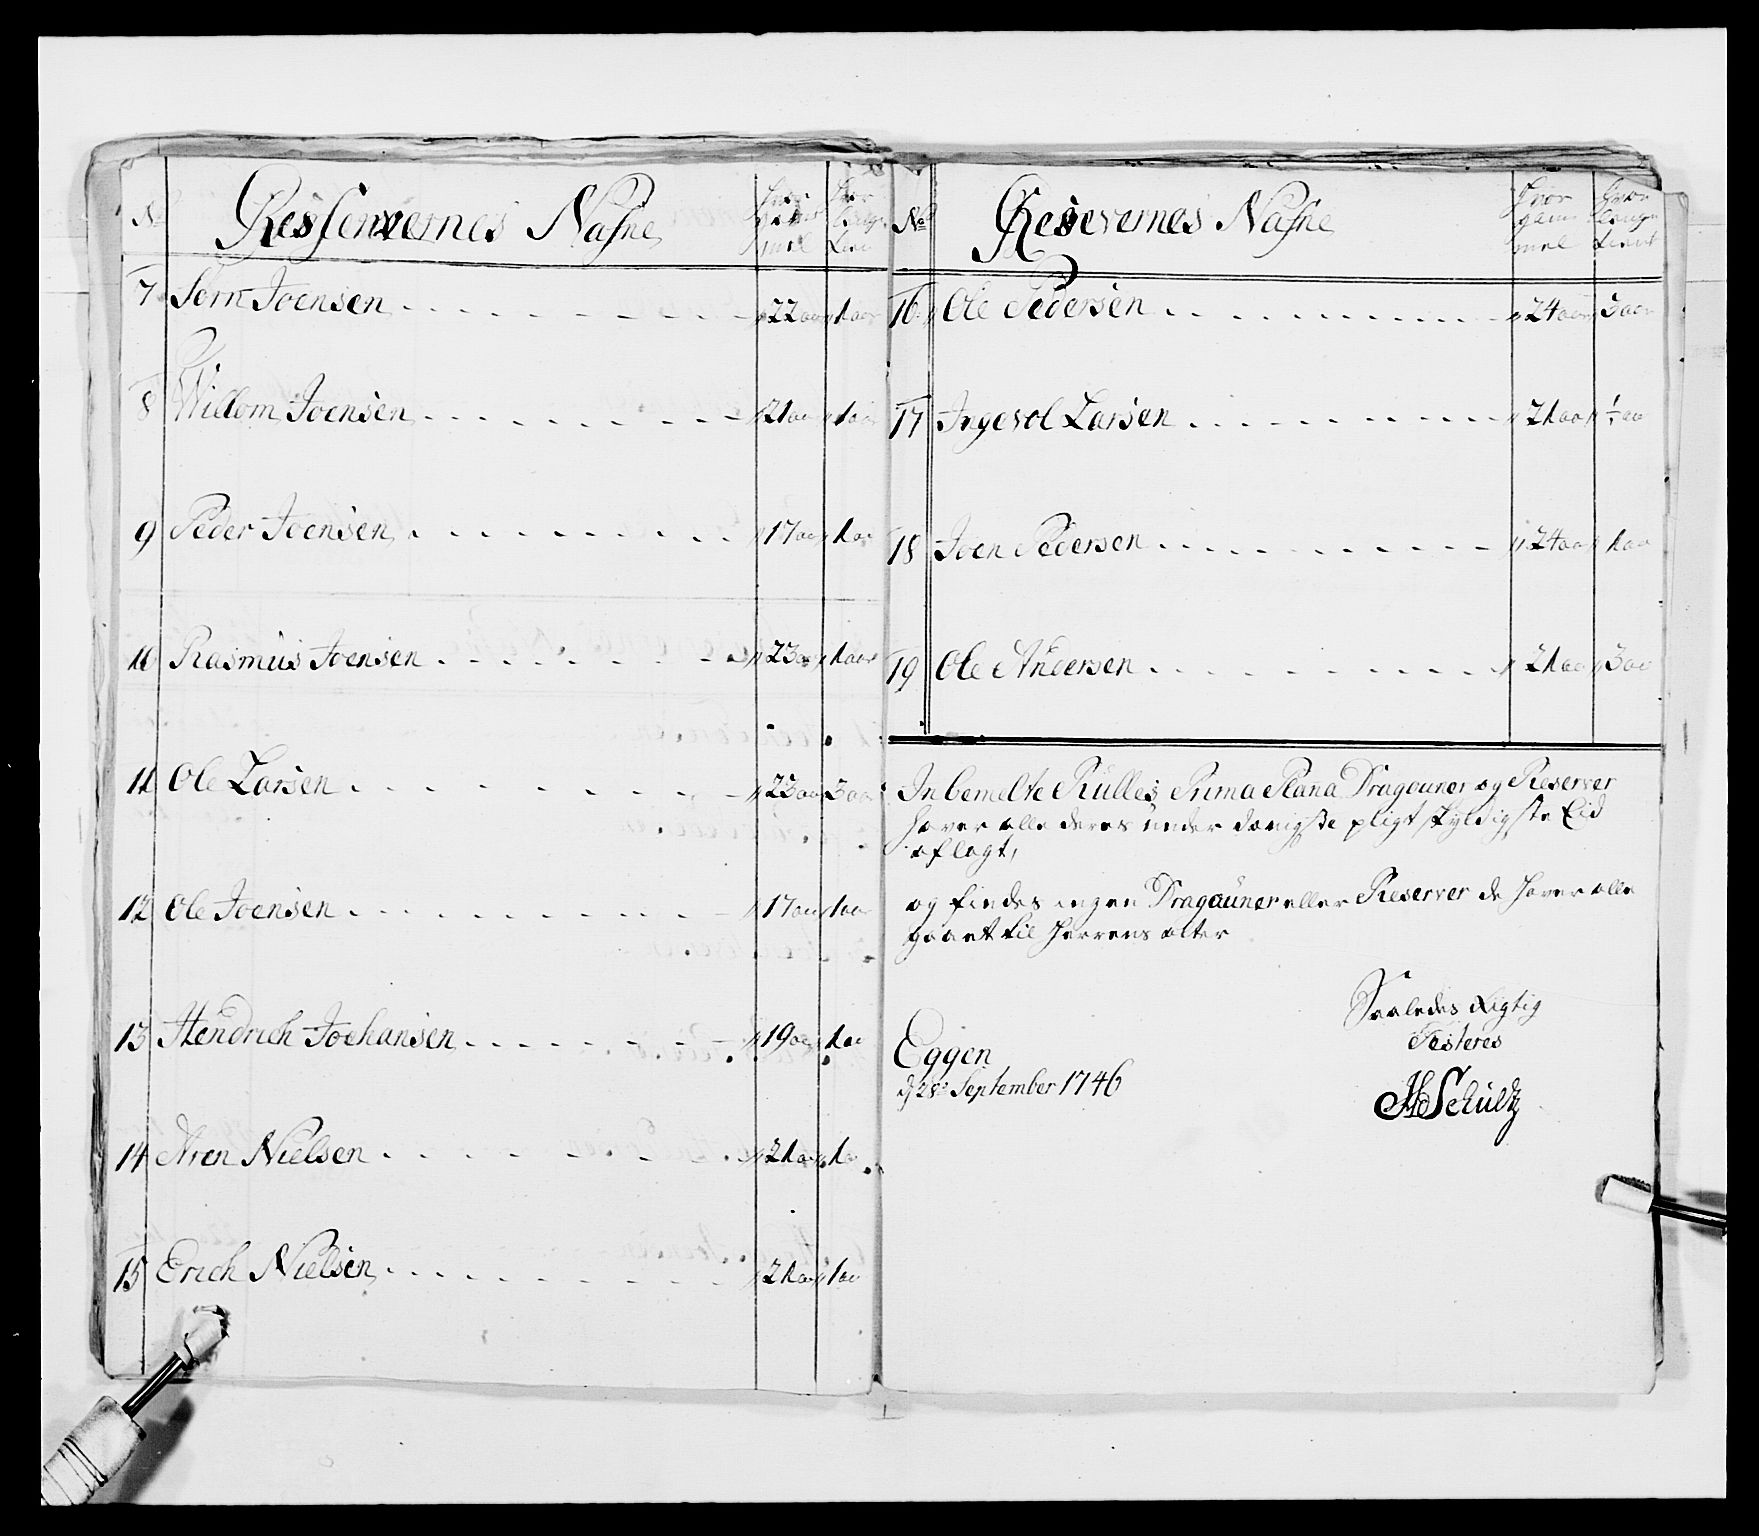 No
Resserwernes Nafne
hvor gammel
hvor lenge tient
7 Sørn Joensen 22 aar 1 aar
8 Willom Joensen 21 aar 1 aar
9 Peder Joensen 17 aar 1 aar
10 Rasmus Joensen 23 aar 1 aar
11 Ole Larsen 23 aar 3 aar
12 Ole Joensen 17 aar 1 aar
13 Hendrich Joehansen 19 aar 1 aar
14 Aren Nielsen 21 aar 1 aar
15 Erich Nielsen 21 aar 1 aar
No
Resevernes Nafne
hvor gammel
hvor lenge tient
16 Ole Pedersen 24 aar 3 aar
17 Ingevol Larsen 21 aar 1/2 aar
18 Joen Pedersen 24 aar 1 aar
19 Ole Andersen 21 aar 3 aar
Inbemelte Rulles Prima Plana Dragouner og Reserver
haver alle deres under danigste pligt skyldigste Eid
aflagt,
og findes ingen Dragouner eller Reserver de haver alle
gaaet til Herrens alter
Saaledes Rigtig
Testeres
Eggen
d 28de September 1746
Schultz